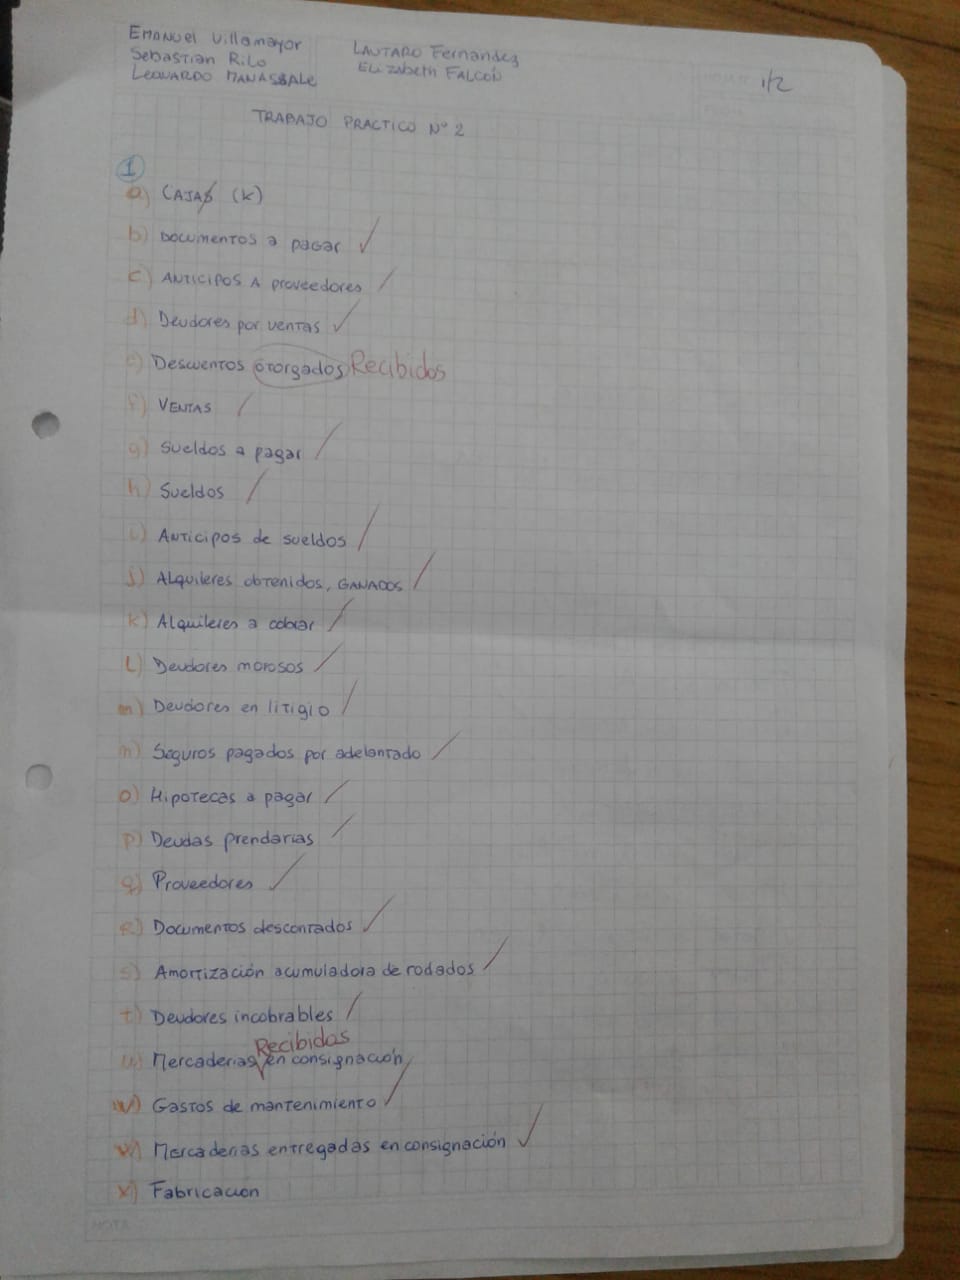 EMANUEL Villamayor
Sebastian RiLo
LEONARDO MANASSALE
LAUTARO Fernandez
ELIZABETH FALCÓN
1/2
TRABAJO PRACTICO Nº 2
1
a) CAJAS (K)
b) DOCUMENTOS a pagar
c) ANTICIPOS A proveedores
d) Deudores por ventas
e) Descuentos otorgados Recibidos
f) VENTAS
g) Sueldos a pagar
h) Sueldos
i) Anticipos de sueldos
j) Alquileres obtenidos, GANADOS
k) Alquileres a cobrar
L) Deudores morosos
m) Deudores en litigio
n) Seguros pagados por adelantado
o) Hipotecas a pagar
p) Deudas prendarias
q) Proveedores
R) Documentos descontados
s) Amortización acumuladora de rodados
t) Deudores incobrables
Recibidas
u) Mercaderias en consignación
v) Gastos de mantenimiento
w) Mercaderias entregadas en consignación
x) Fabricación
NOTA